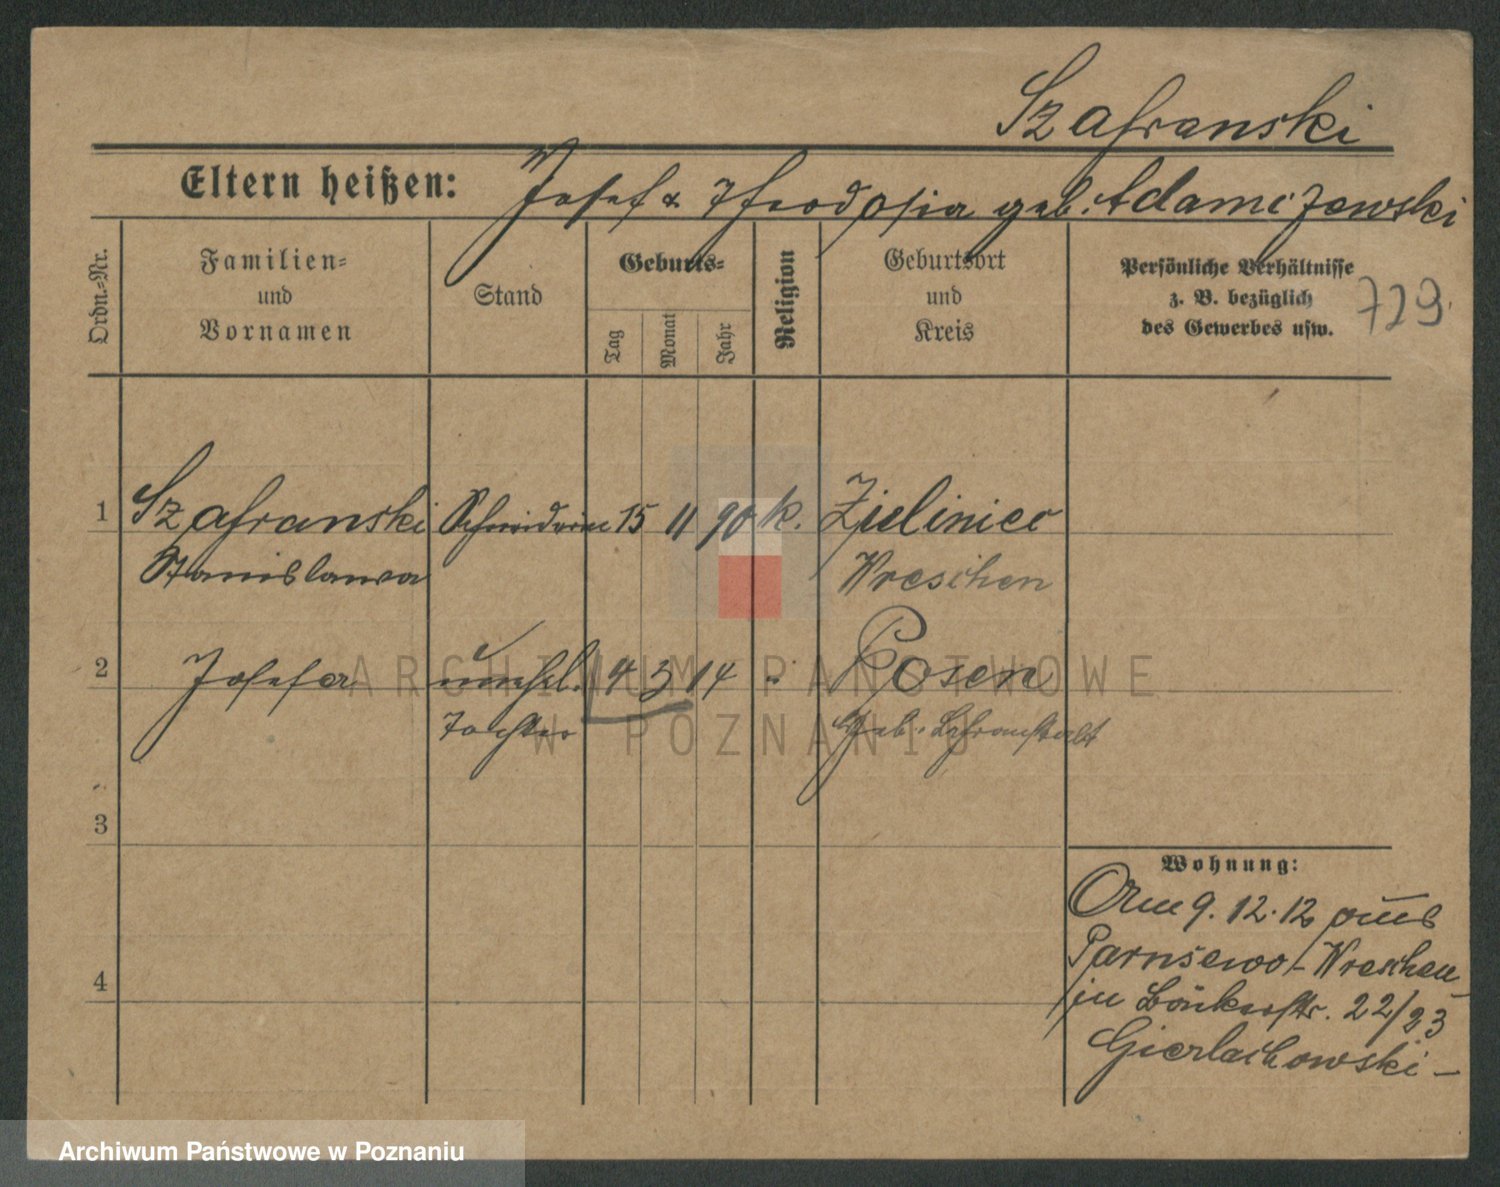 Szafranski
Eltern heißen: Josef & Theodosia geb. Adamczewski
Ordn.-Nr.
Familien-
und
Vornamen
Stand
Geburts-
Tag
Monat
Jahr
Religion
Geburtsort
und
Kreis
Persönliche Verhältnisse
z. B. bezüglich
des Gewerbes usw.
729.
1 Szafranski Schneiderin 15 11 90 k. Zieliniec
Stanislawa Wreschen
2 Josefa unehel. 4 3 14 " Posen
Tochter Geb.
3
4
Wohnung:
Am 9. 12. 12 aus
Parusewo-Wreschen
in Bäckerstr. 22/23
Gierlachowski-
ARCHIWUM PAŃSTWOWE
W POZNANIU
Archiwum Państwowe w Poznaniu